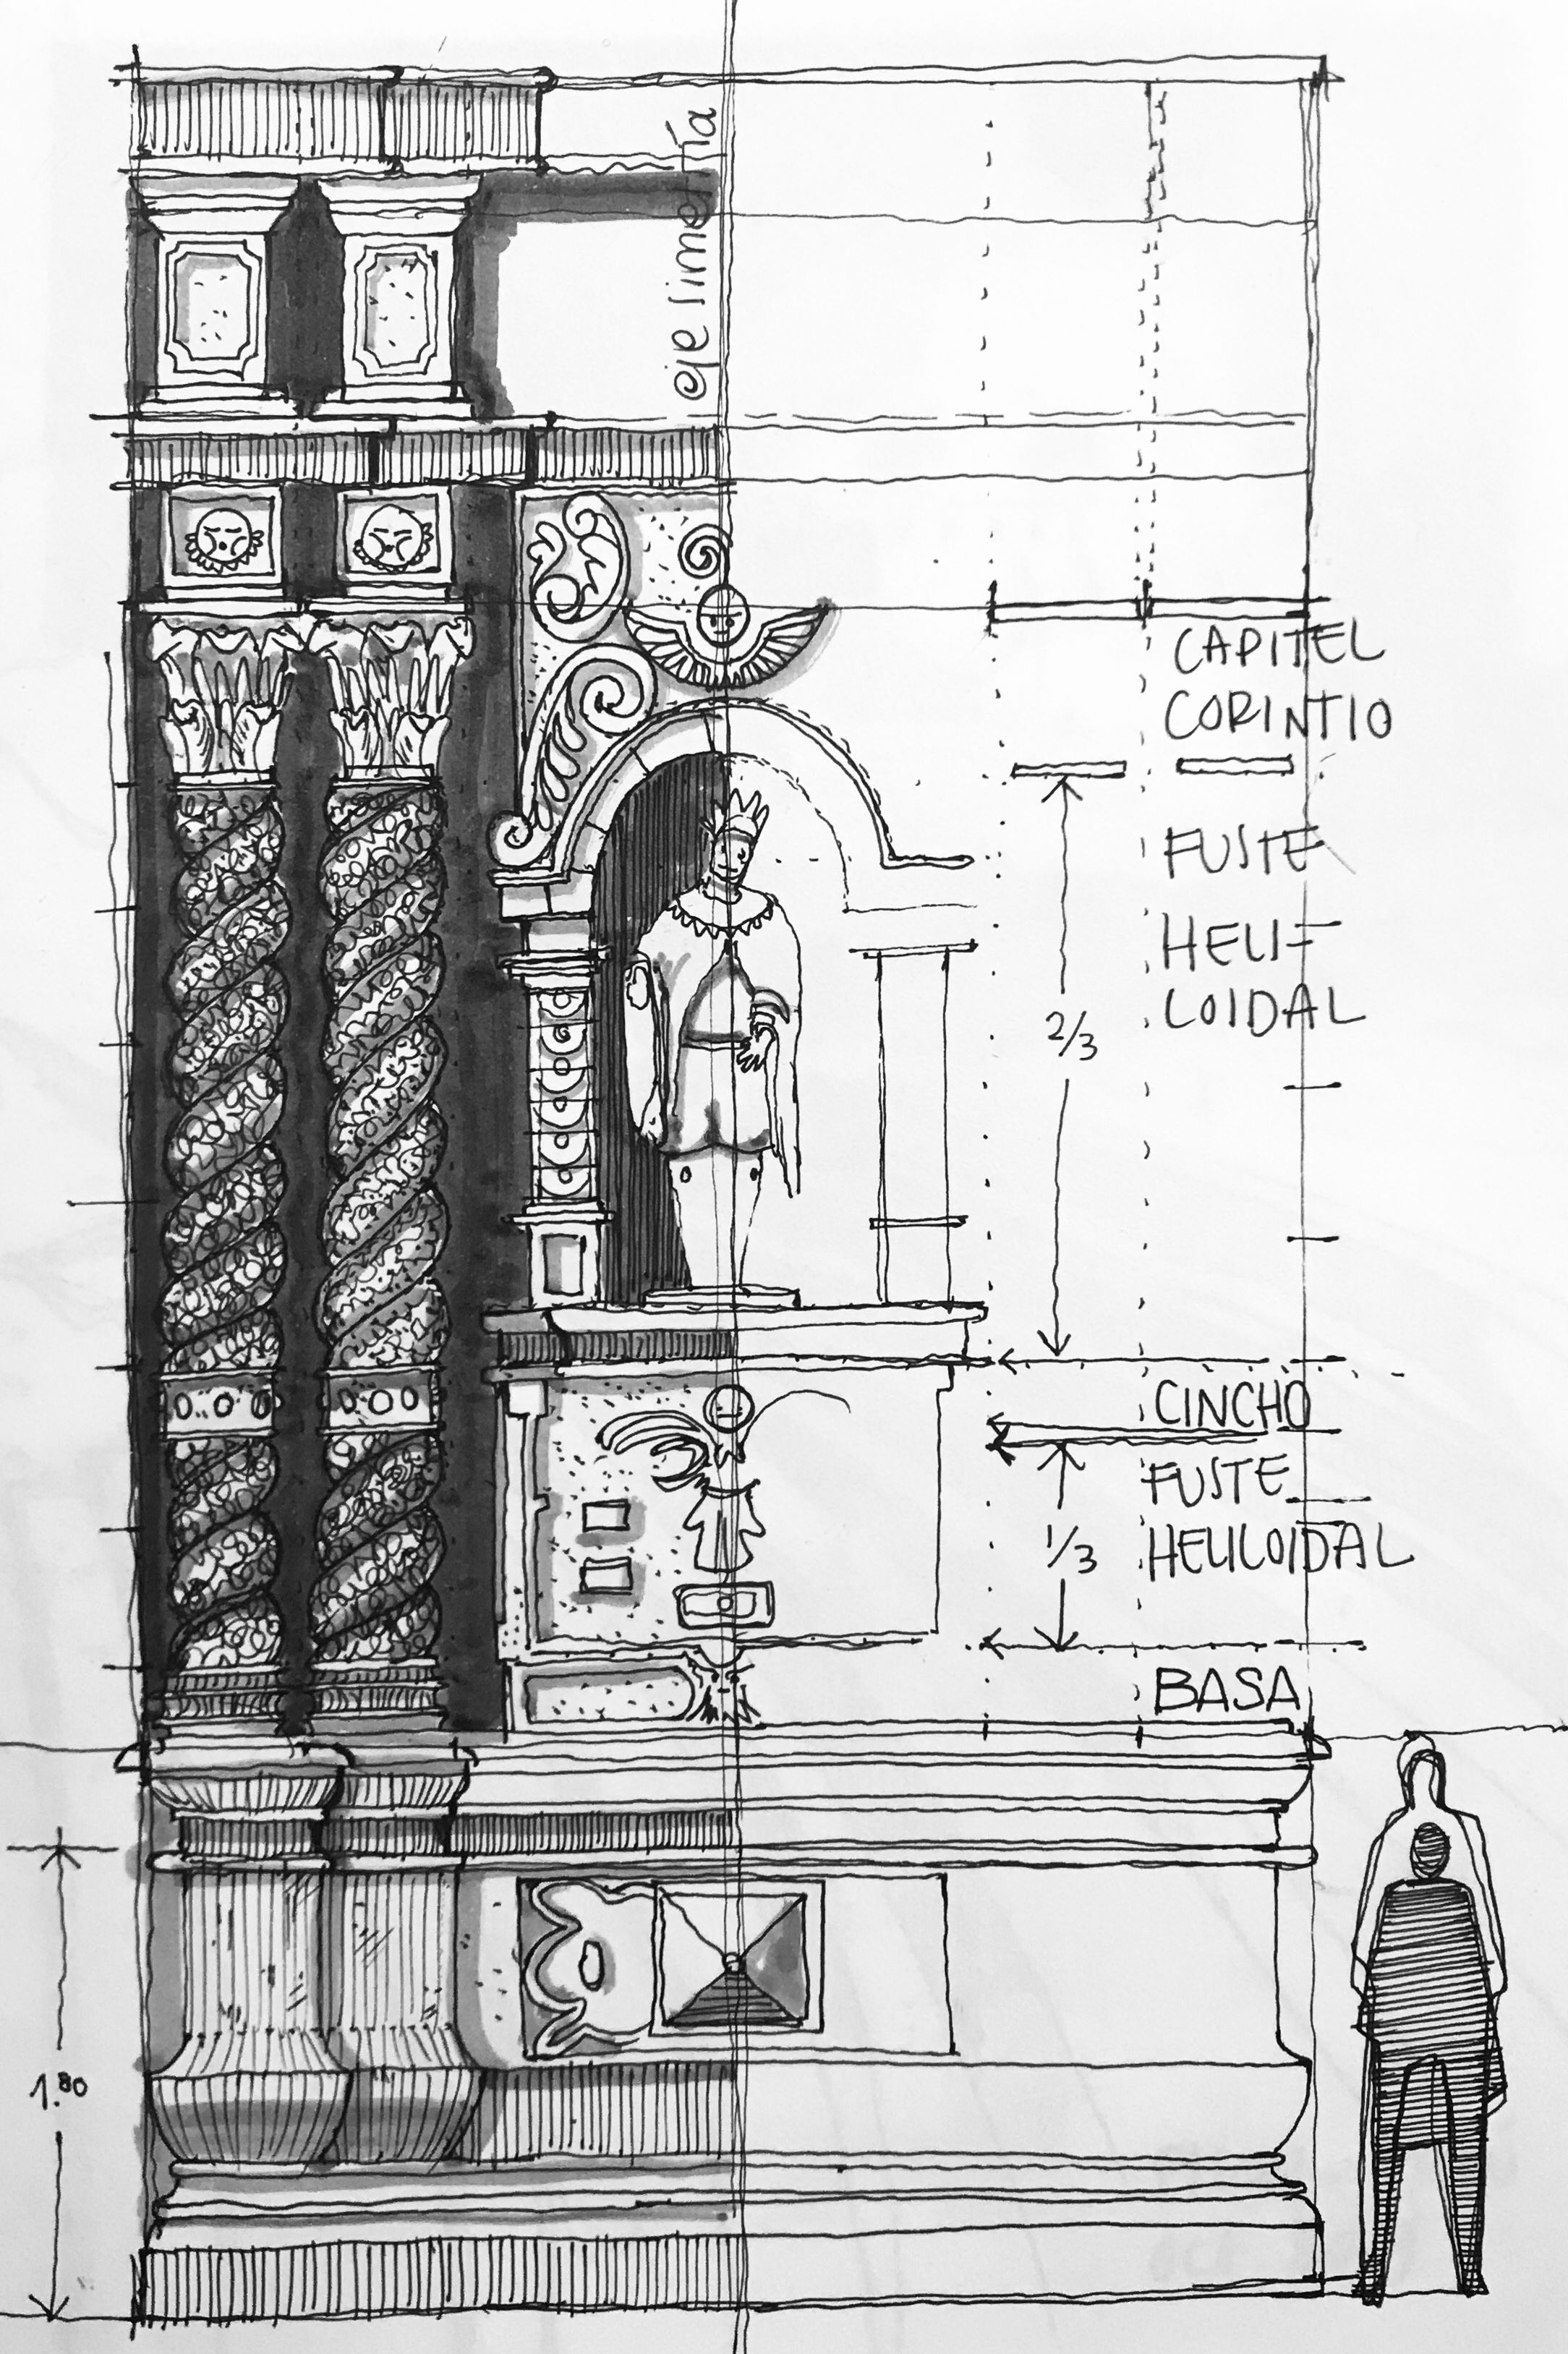 eje simetría
CAPITEL
CORINTIO
FUSTE
HELI-
COIDAL
2/3
CINCHO
FUSTE
HELICOIDAL
1/3
BASA
1.80